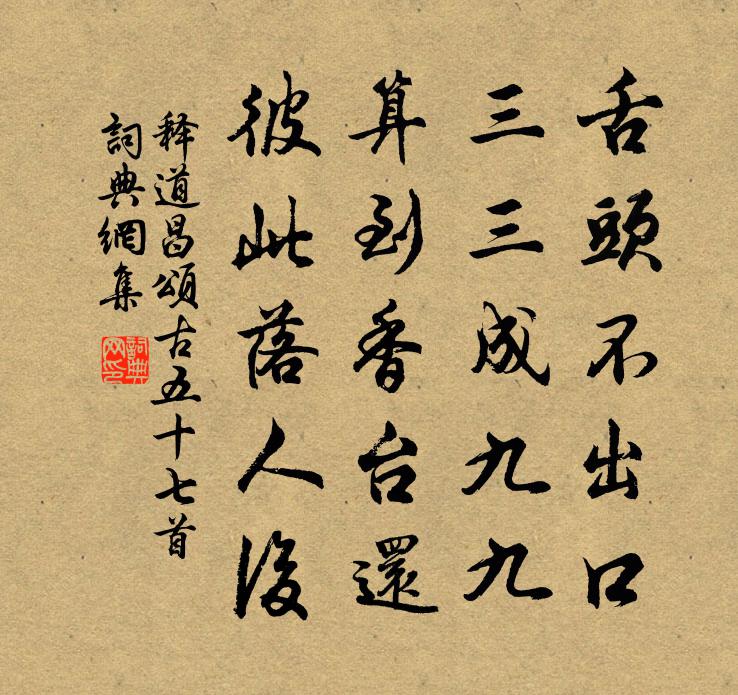 舌頭不出口
三三成九九
算到香台還
彼此落人後
释道昌頌古五十七首
詞典網集
詞典
网印